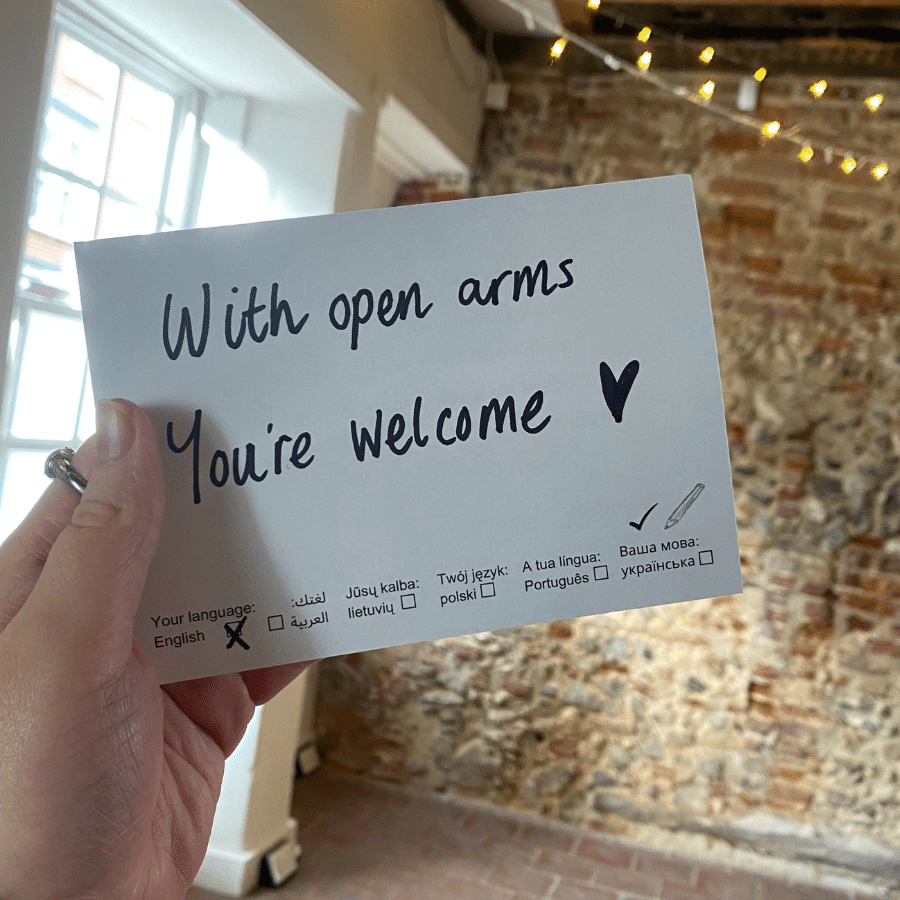 With open arms
You're welcome
Your language:
English
لغتك:
العربية
Jūsų kalba:
lietuvių
Twój język:
polski
A tua língua:
Português
Ваша мова:
українська